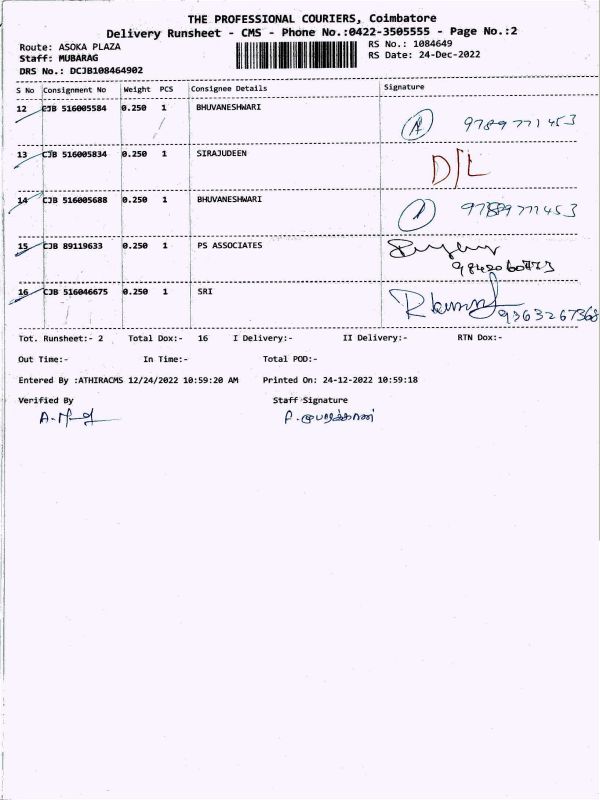 THE PROFESSIONAL COURIERS, Coimbatore
Delivery Runsheet - CMS - Phone No.:0422-3505555 - Page No.:2
Route: ASOKA PLAZA RS No.: 1084649
Staff: MUBARAG RS Date: 24-Dec-2022
DRS No.: DCJB108464902
S No Consignment No Weight PCS Consignee Details Signature
12 CJB 516005584 0.250 1 BHUVANESHWARI
9789771453
13 CJB 516005834 0.250 1 SIRAJUDEEN
D/L
14 CJB 516005688 0.250 1 BHUVANESHWARI
9789971453
15 CJB 89119633 0.250 1 PS ASSOCIATES
16 CJB 516046675 0.250 1 SRI
9363267368
Tot. Runsheet:- 2 Total Dox:- 16 I Delivery:- II Delivery:- RTN Dox:-
Out Time:- In Time:- Total POD:-
Entered By :ATHIRACMS 12/24/2022 10:59:20 AM Printed On: 24-12-2022 10:59:18
Verified By Staff Signature